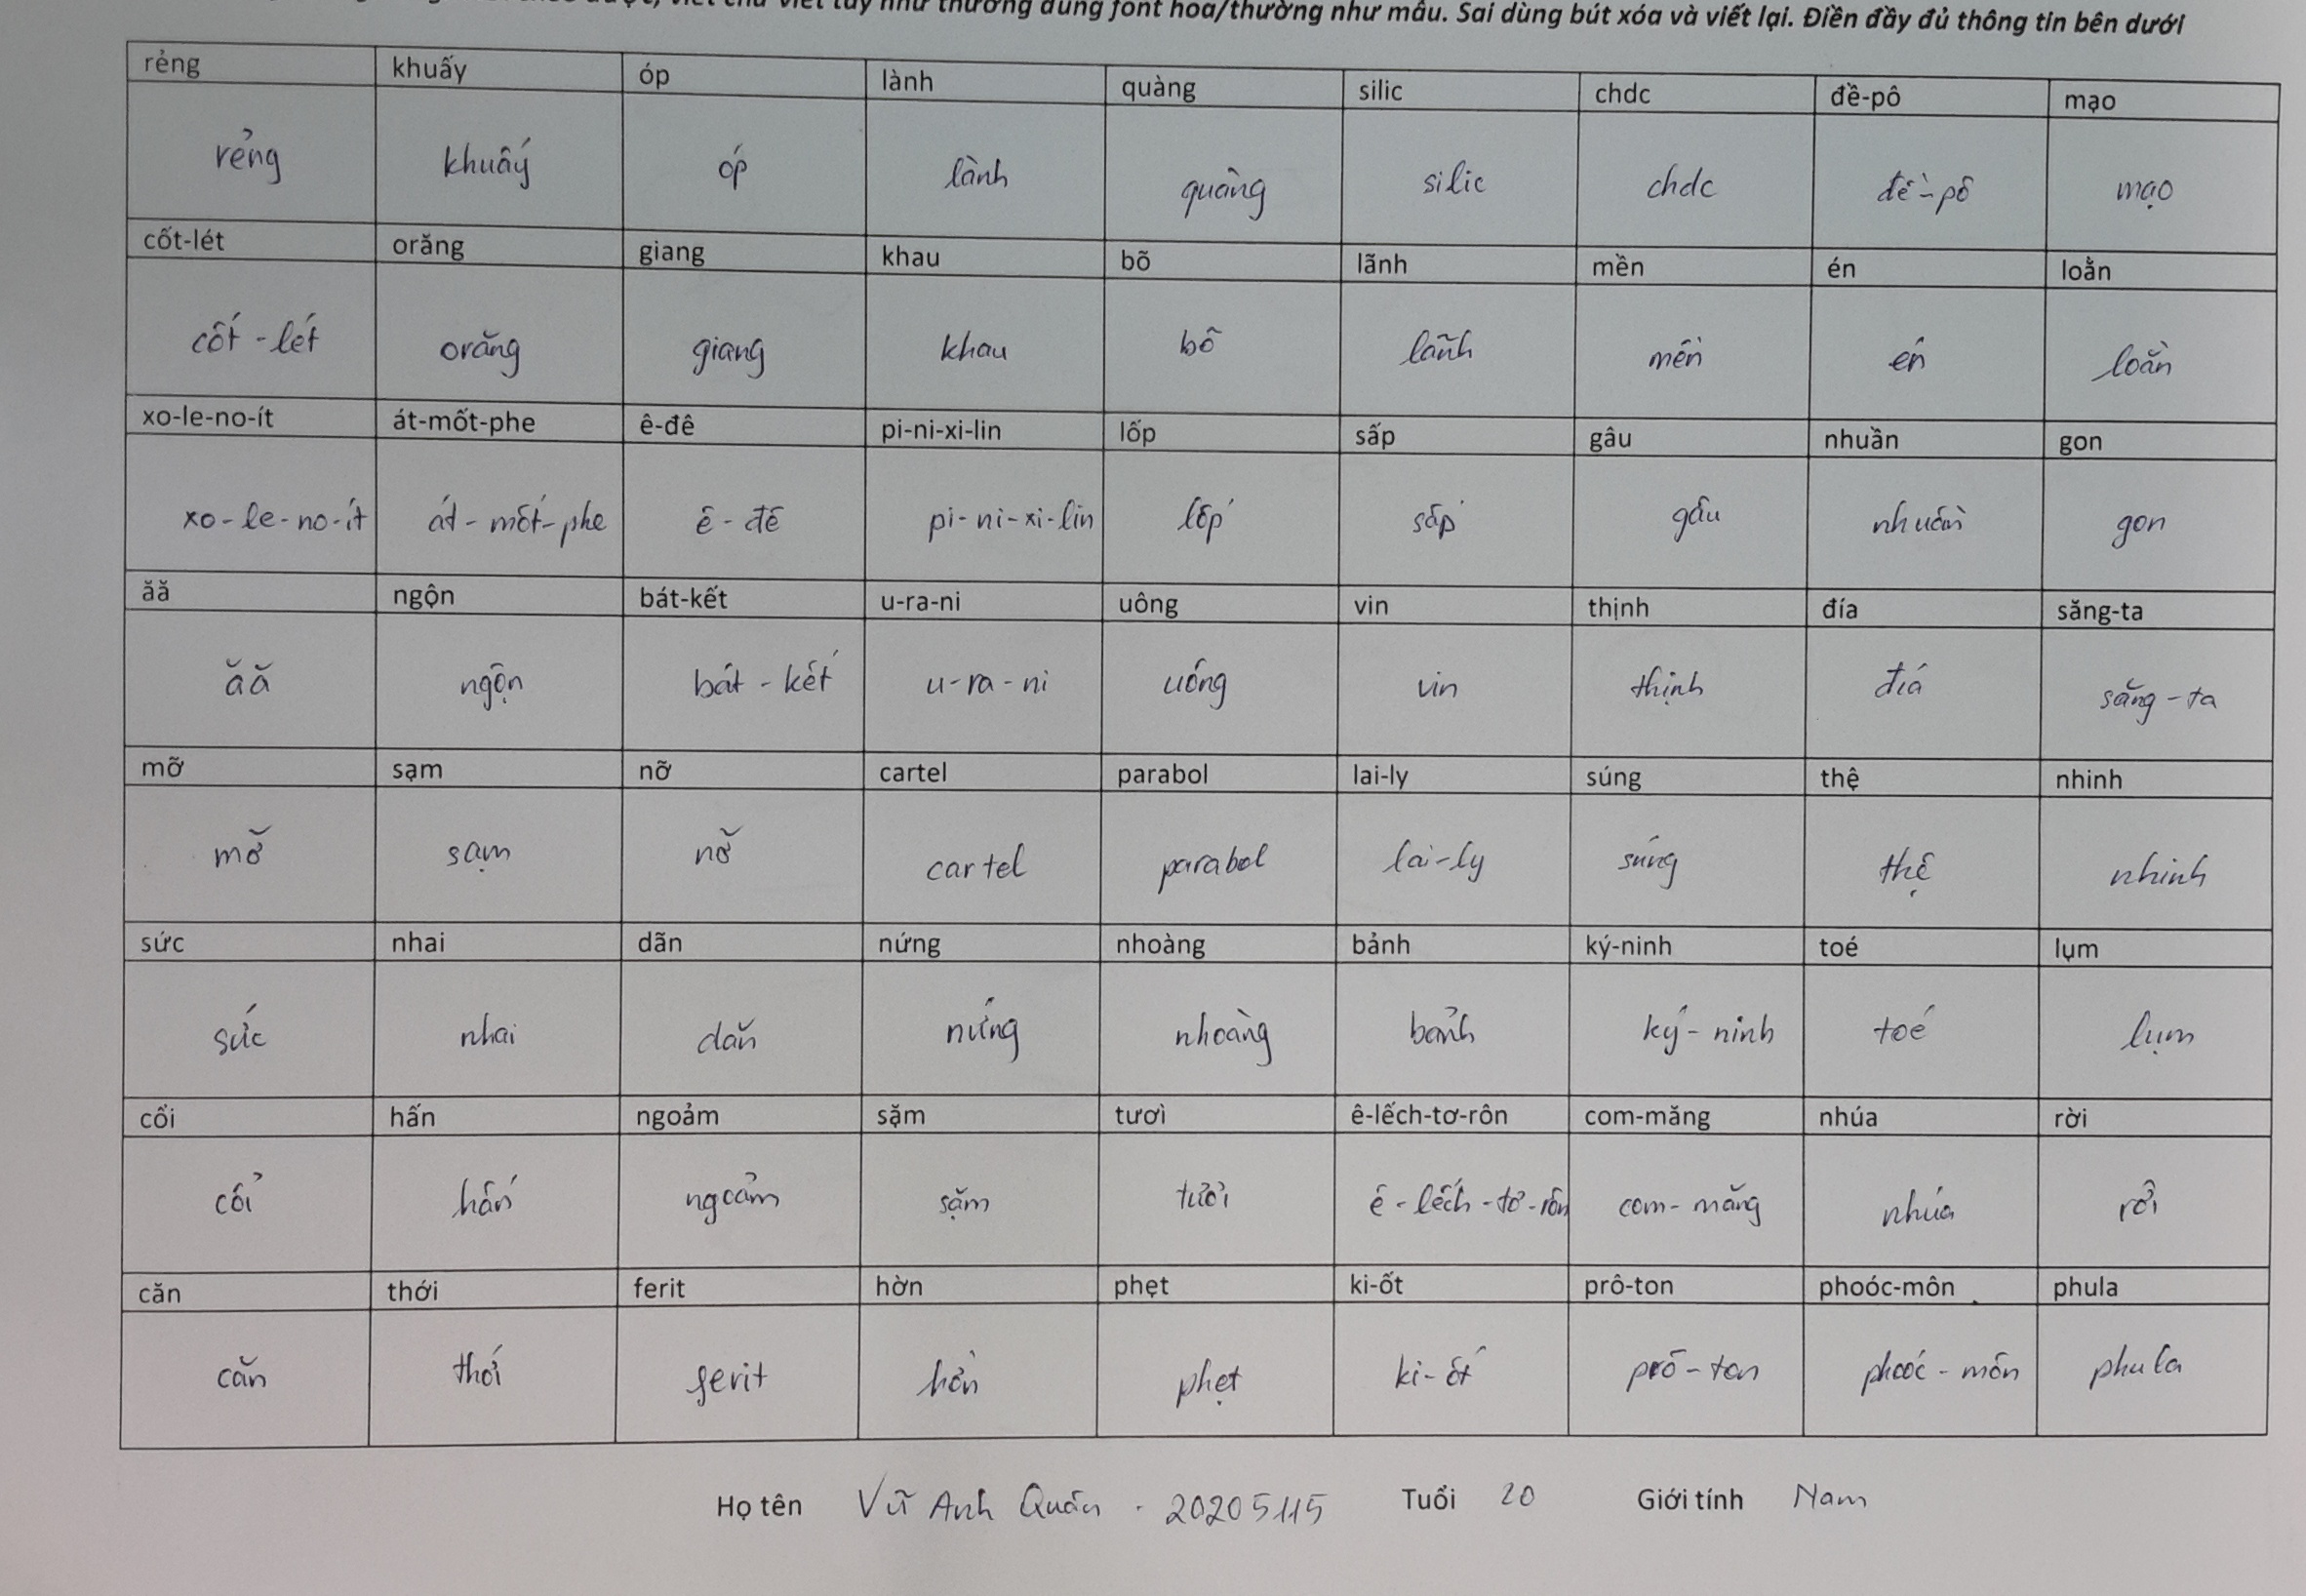 viết chữ viết tay như thường dùng font hoa/thường như mẫu. Sai dùng bút xóa và viết lại. Điền đầy đủ thông tin bên dưới
rẻng khuấy óp lành quàng silic chdc đề-pô mạo
rẻng khuấy óp lành quàng silic chdc đề-pô mạo
cốt-lét orăng giang khau bõ lãnh mền én loằn
cốt-lét orăng giang khau bõ lãnh mền én loằn
xo-le-no-ít át-mốt-phe ê-đê pi-ni-xi-lin lốp sấp gâu nhuần gon
xo-le-no-ít át-mốt-phe ê-đê pi-ni-xi-lin lốp sấp gâu nhuần gon
ăă ngộn bát-kết u-ra-ni uông vin thịnh đía săng-ta
ăă ngộn bát-kết u-ra-ni uông vin thịnh đía săng-ta
mỡ sạm nỡ cartel parabol lai-ly súng thệ nhinh
mỡ sạm nỡ cartel parabol lai-ly súng thệ nhinh
sức nhai dãn nứng nhoàng bảnh ký-ninh toé lụm
sức nhai dãn nứng nhoàng bảnh ký-ninh toé lụm
cổi hấn ngoảm sặm tươì ê-lếch-tơ-rôn com-măng nhúa rời
cổi hấn ngoảm sặm tươì ê-lếch-tơ-rôn com-măng nhúa rời
căn thới ferit hờn phẹt ki-ốt prô-ton phoóc-môn phula
căn thới ferit hờn phẹt ki-ốt prô-ton phoóc-môn phula
Họ tên Vũ Anh Quân - 20205115 Tuổi 20 Giới tính Nam